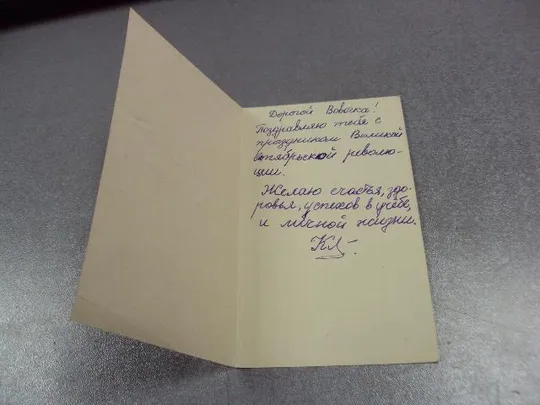 Дорогой Вовочка!
Поздравляю тебя с
праздником Великой
Октябрьской револю-
ции.
Желаю счастья, здо-
ровья, успехов в учёбе,
и личной жизни.